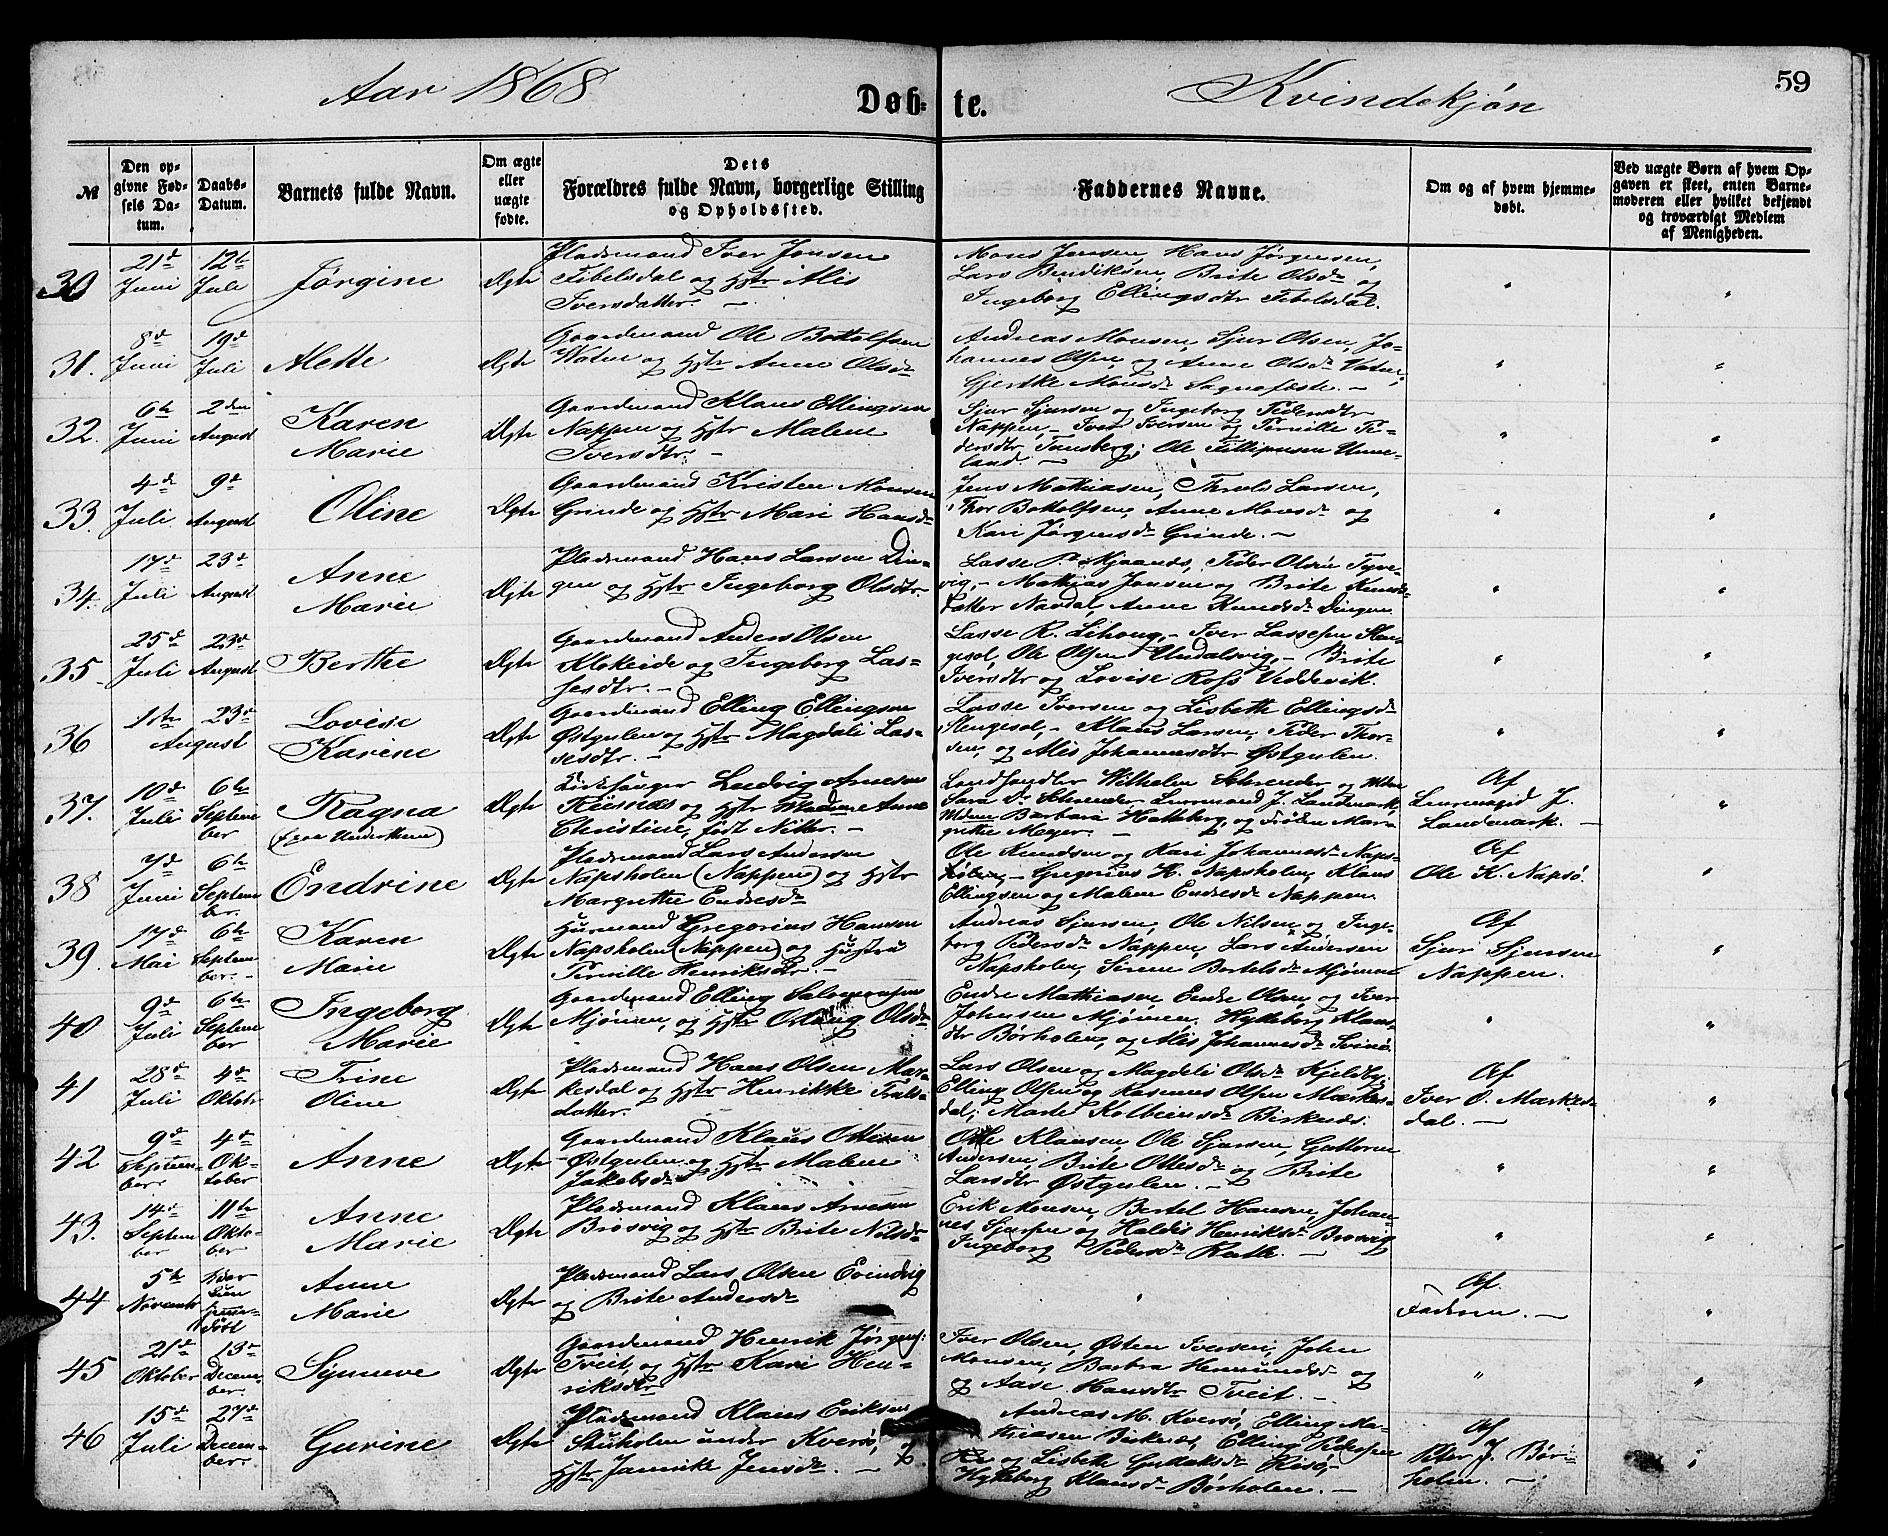 Aar 1868
Døb- te.
Kvindekjøn
59
№
Den op-
givne Fød-
sels Da-
tum.
Daabs-
Datum.
Barnets fulde Navn.
Om ægte
eller
uægte
fødte.
Dets
Forældres fulde Navn, borgerlige Stilling
og Opholdssted.
Faddernes Navne.
Om og af hvem hjemme-
døbt.
Ved uægte Børn af hvem Op-
gaven er skeet, enten Barne-
moderen eller hvilket bekjendt
og troværdigt Medlem
af Menigheden.
30
21de Juni
12te Juli
Jørgine
Ægte
Pladsmand Iver Jonsen
Fibelsdal og Hstr Alis
Iversdatter. —
Mons Jensen, Hans Jørgensen,
Lars Bendiksen, Brite Olsdr og
Ingeborg Ellingsdtr Fibelsdal.
31.
8de Juni
19de Juli
Alette
Ægte
Gaardmand Ole Bottolfsen
Watne og Hstr Anne Olsdr
Andreas Monsen, Sjur Olsen, Jo-
hannes Olsen, og Anne Olsdr Vatne;
Gjertke Monsdr Sognefeste. —
32.
6te Juni
2den August
Karen
Marie
Ægte
Gaardmand Klaus Ellingsen
Nappen og Hstr Malene
Iversdtr. —
Sjur Sjursen og Ingeborg Pedersdtr
Nappen, — Iver Iversen og Pernille Pe-
dersdtr Tunsberg; Ole Fillipusen Unne-
land. —
33.
4de Juli
9de August
Oline
Ægte
Gaardmand Kristen Monsen
Grinde og Hstr Mari Hansdr
Jens Mathiasen, Throls Larsen,
Thor Bottolfsen, Anne Monsdr og
Kari Jørgensdr Grinde. —
34.
17de Juli
23de August
Anne
Marie
Ægte
Pladsmand Hans Larsen Din-
gen og Hstr Ingeborg Olsdtr.
Lasse P. Mjaanes, Peder Olsen
vig, — Mathias Jensen og Brite Knuds-
datter Navdal, Anne Knudsdr Dingen.
35
25de Juli
23de August
Berthe
Ægte
Gaardmand Anders Olsen
Klokeide og Ingeborg Las-
sesdtr. —
Lasse R. Lihoug, — Iver Lassesen Slen-
gesol, Ole Olsen Undalsvig, — Brite
Iversdtr og Lovise Ross Veddevik.
36
1ste August
23de
Lovise
Karine
Ægte
Gaardmand Elling Ellingsen
Østgulen og Hstr Magdeli Las-
sesdtr. —
Lasse Iversen og Lisbeth Ellingsdr
Slengesol, — Klaus Larsen, Peder Thor-
sen, og Alis Johannesdtr Østgulen.
37.
10de Juli
6te Septem
ber
Ragna
Ægte
Kirkesanger Ludvig Arnesen
og Hstr Madme Anne
Christine, født Nitter. —
Landhandler Wilhelm Schreuder og Mdme
Sara Dr Schreuder, Lensmand J. Landmark,
Mdme Barbara Hatteberg, og Frøken Mar-
grethe Meyer. —
Af
J.
Landmark. —
38
7de Juni
6te Septem
ber.
Endrine
Ægte
Pladsmand Lars Andersen
Napsholm (Nappen) og Hstr
Margrethe Endresdr
Ole Knudsen og Kari Johannesdr Naps-
— Gregorius H. Napsholm, Klaus
Ellingsen og Malene Endresdr Nappen.
Af
Ole K. Napsø.
39.
17de Mai
6te Septem
ber. —
Karen
Marie
Ægte
Huusmand Gregorius Hansen
Napsholm (Nappen) og Hustru
Pernille Henriksdtr. —
Andreas Sjursen, Ole Nilsen og Inge-
borg Pedersdr Nappen, Lars Andersen
Napsholm, Sirene Bertelsdr Mjømne
Af
Sjur Sjursen
Nappen.
40
9de Juli
6te Septem
ber
Ingeborg
Marie
Ægte
Gaardmand Elling Salomonsen
Mjømen, og Hstr Olsdr
Endre Mathiasen, Endre Olsen, og Iver
Johnsen Mjømen. Hylleborg Klaus-
dtr Børholm, og Alis Johannesdr Svinø.
41
28de Juli
4de Oktobr
Trine
Oline
Ægte
Pladsmand Hans Olsen Mar-
kesdal og Hstr Henrikke Trulls-
datter.
Lars Olsen og Magdeli Olsdr Kjelby;
Elling Olsen og Rasmus Olsen Markes-
dal; Marte Kolbeinsdr Birknes.
Af
Iver O. Markes-
dal. —
42
9de Septem-
ber.
4de Ok-
tober
Anne
Ægte
Gaardmand Klaus Ottesen
Østgulen og Hstr Malene
Jakobsdr
Otte Klausen, Ole Sjursen, Guttorm
Andersen, Brite Ottesdr og Brite
Larsdtr Østgulen. —
43.
14de Septem
ber
11te Okto-
ber
Anne
Marie
Ægte
Pladsmand Klaus Arnesen
Brosvig og Hstr Brite Nilsdr
Erik Monsen, Bertel Hansen, Johan-
nes Sjursen og Haldis Henriksdr Brosvig
Ingeborg Pedersdr Rutle. —
44
5te Novembr
Anne
Marie
Ægte
Pladsmand Lars Olsen Evindvig
og Brite Andersdr
Af
Faderen. —
45
21de Oktober
13de Decem-
ber.
Synneve
Ægte
Gaardmand Henrik Jørgens.
Tveit, og Hstr Kari Hen-
riksdtr
Iver Olsen, Østen Iversen, John
Monsen, Barbra Hermundsdr og
og Aase Hansdtr Tveit. —
46
15de Juli
27de Decem-
ber.
Gurine
Ægte
Pladsmand Klaus Eriksen
under Kversø, og
Hstr Jannike Jensdr. —
Andreas M. Kversø, Elling Ma-
thiasen Birknes, Elling Pedersen
og Lisbeth Hisø, —
Hylleborg Klausdr Børholm. —
Af
Peter J. Bør-
holm. —